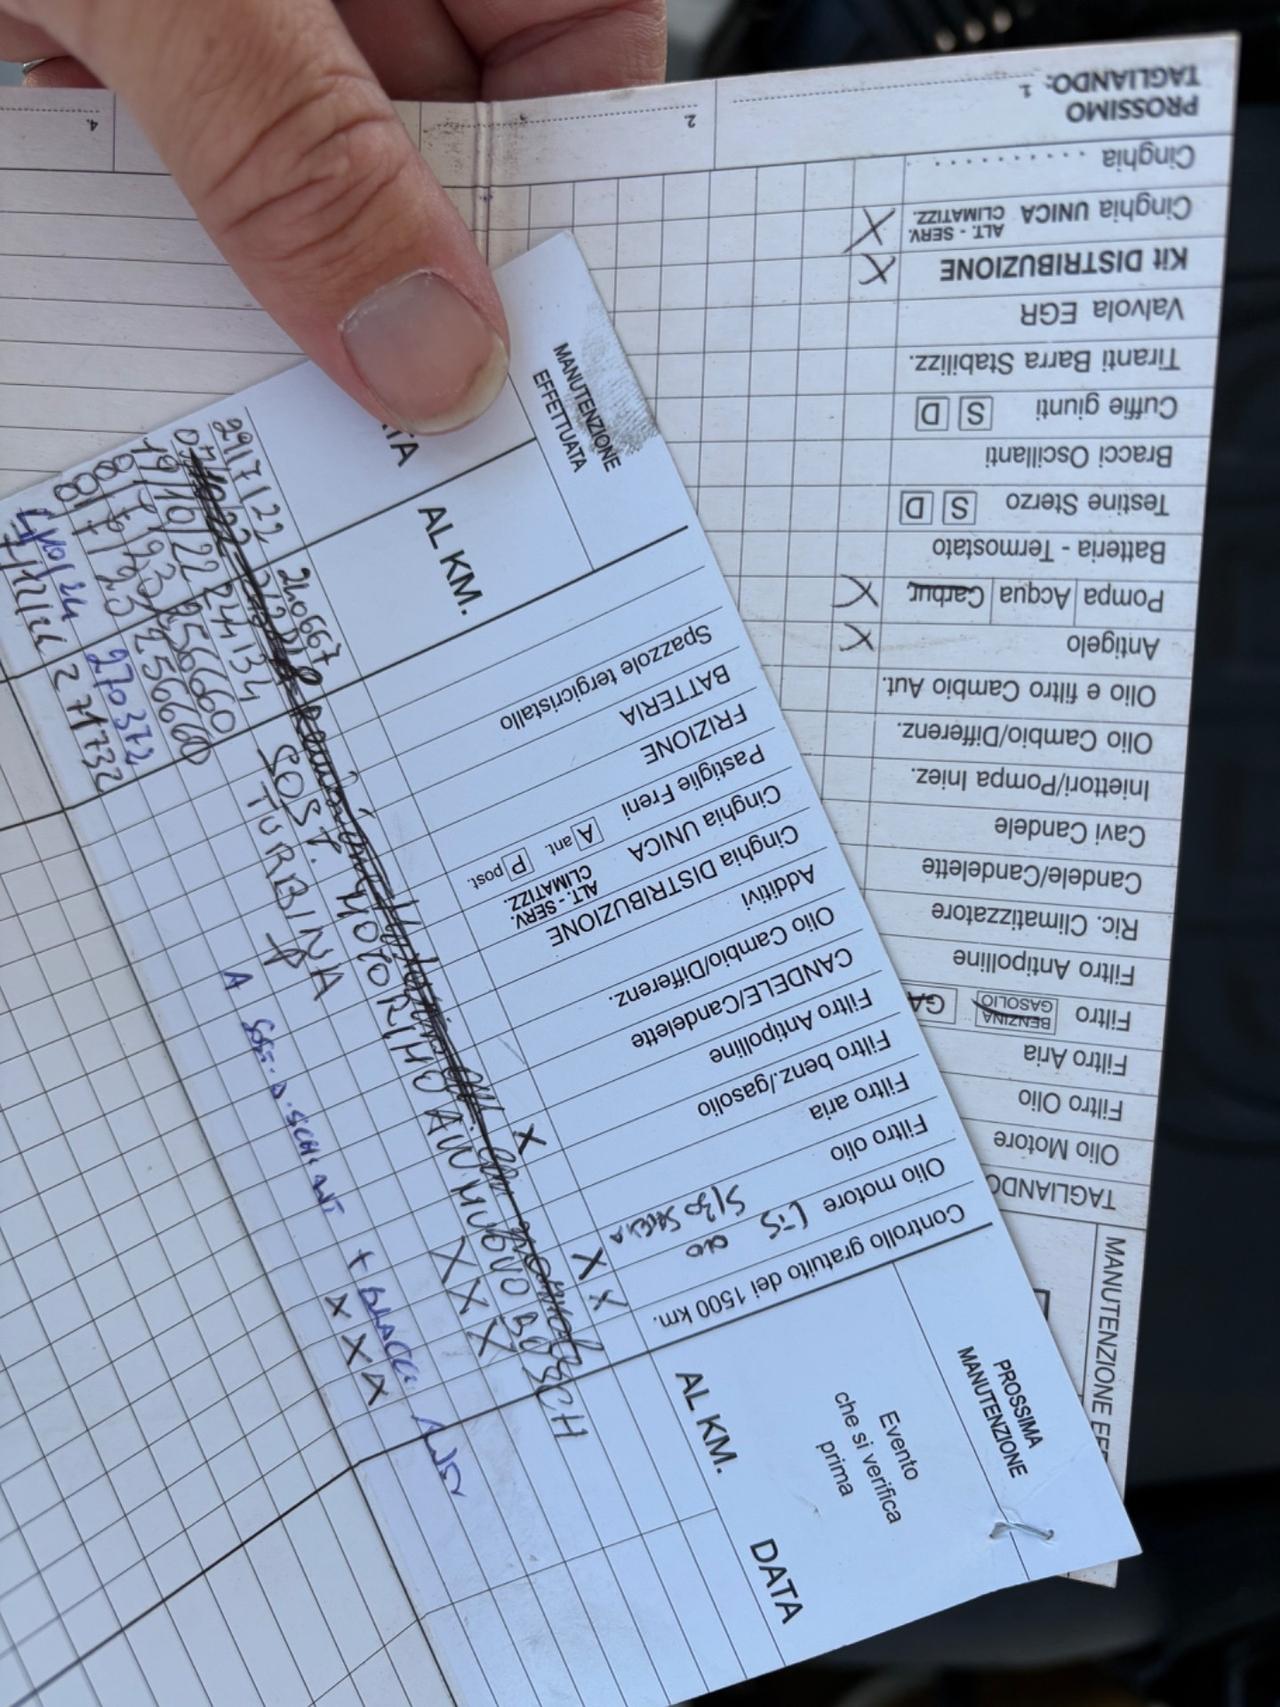 MANUTENZIONE
EFFETTUATA
AL KM.
29/7/22 210667
19/10/22 24134 SOST. MOTORINO AVV. NUOVO BOSCH
8/7/23 256660 TURBINA
8/7/23 256660
4/10/24 270372
271732
Spazzole tergicristallo
BATTERIA
FRIZIONE
Pastiglie Freni A ant. P post.
Cinghia UNICA ALT. - SERV. CLIMATIZZ.
Cinghia DISTRIBUZIONE
Additivi
Olio Cambio/Differenz.
CANDELE/Candelette
Filtro Antipolline
Filtro benz./gasolio
Filtro aria
Filtro olio
Olio motore
Controllo gratuito dei 1500 km.
AL KM.
DATA
Evento
che si verifica
prima
PROSSIMA
MANUTENZIONE
MANUTENZIONE EF
TAGLIANDO
Olio Motore
Filtro Olio
Filtro Aria
Filtro BENZINA GASOLIO GA
Filtro Antipolline
Ric. Climatizzatore
Candele/Candelette
Cavi Candele
Iniettori/Pompa Iniez.
Olio Cambio/Differenz.
Olio e filtro Cambio Aut.
Antigelo X
Pompa Acqua Carbur. X
Batteria - Termostato
Testine Sterzo S D
Bracci Oscillanti
Cuffie giunti S D
Tiranti Barra Stabilizz.
Valvola EGR
Kit DISTRIBUZIONE X
Cinghia UNICA ALT. - SERV. CLIMATIZZ. X
Cinghia ..........
PROSSIMO
TAGLIANDO: 1.
2.
4.